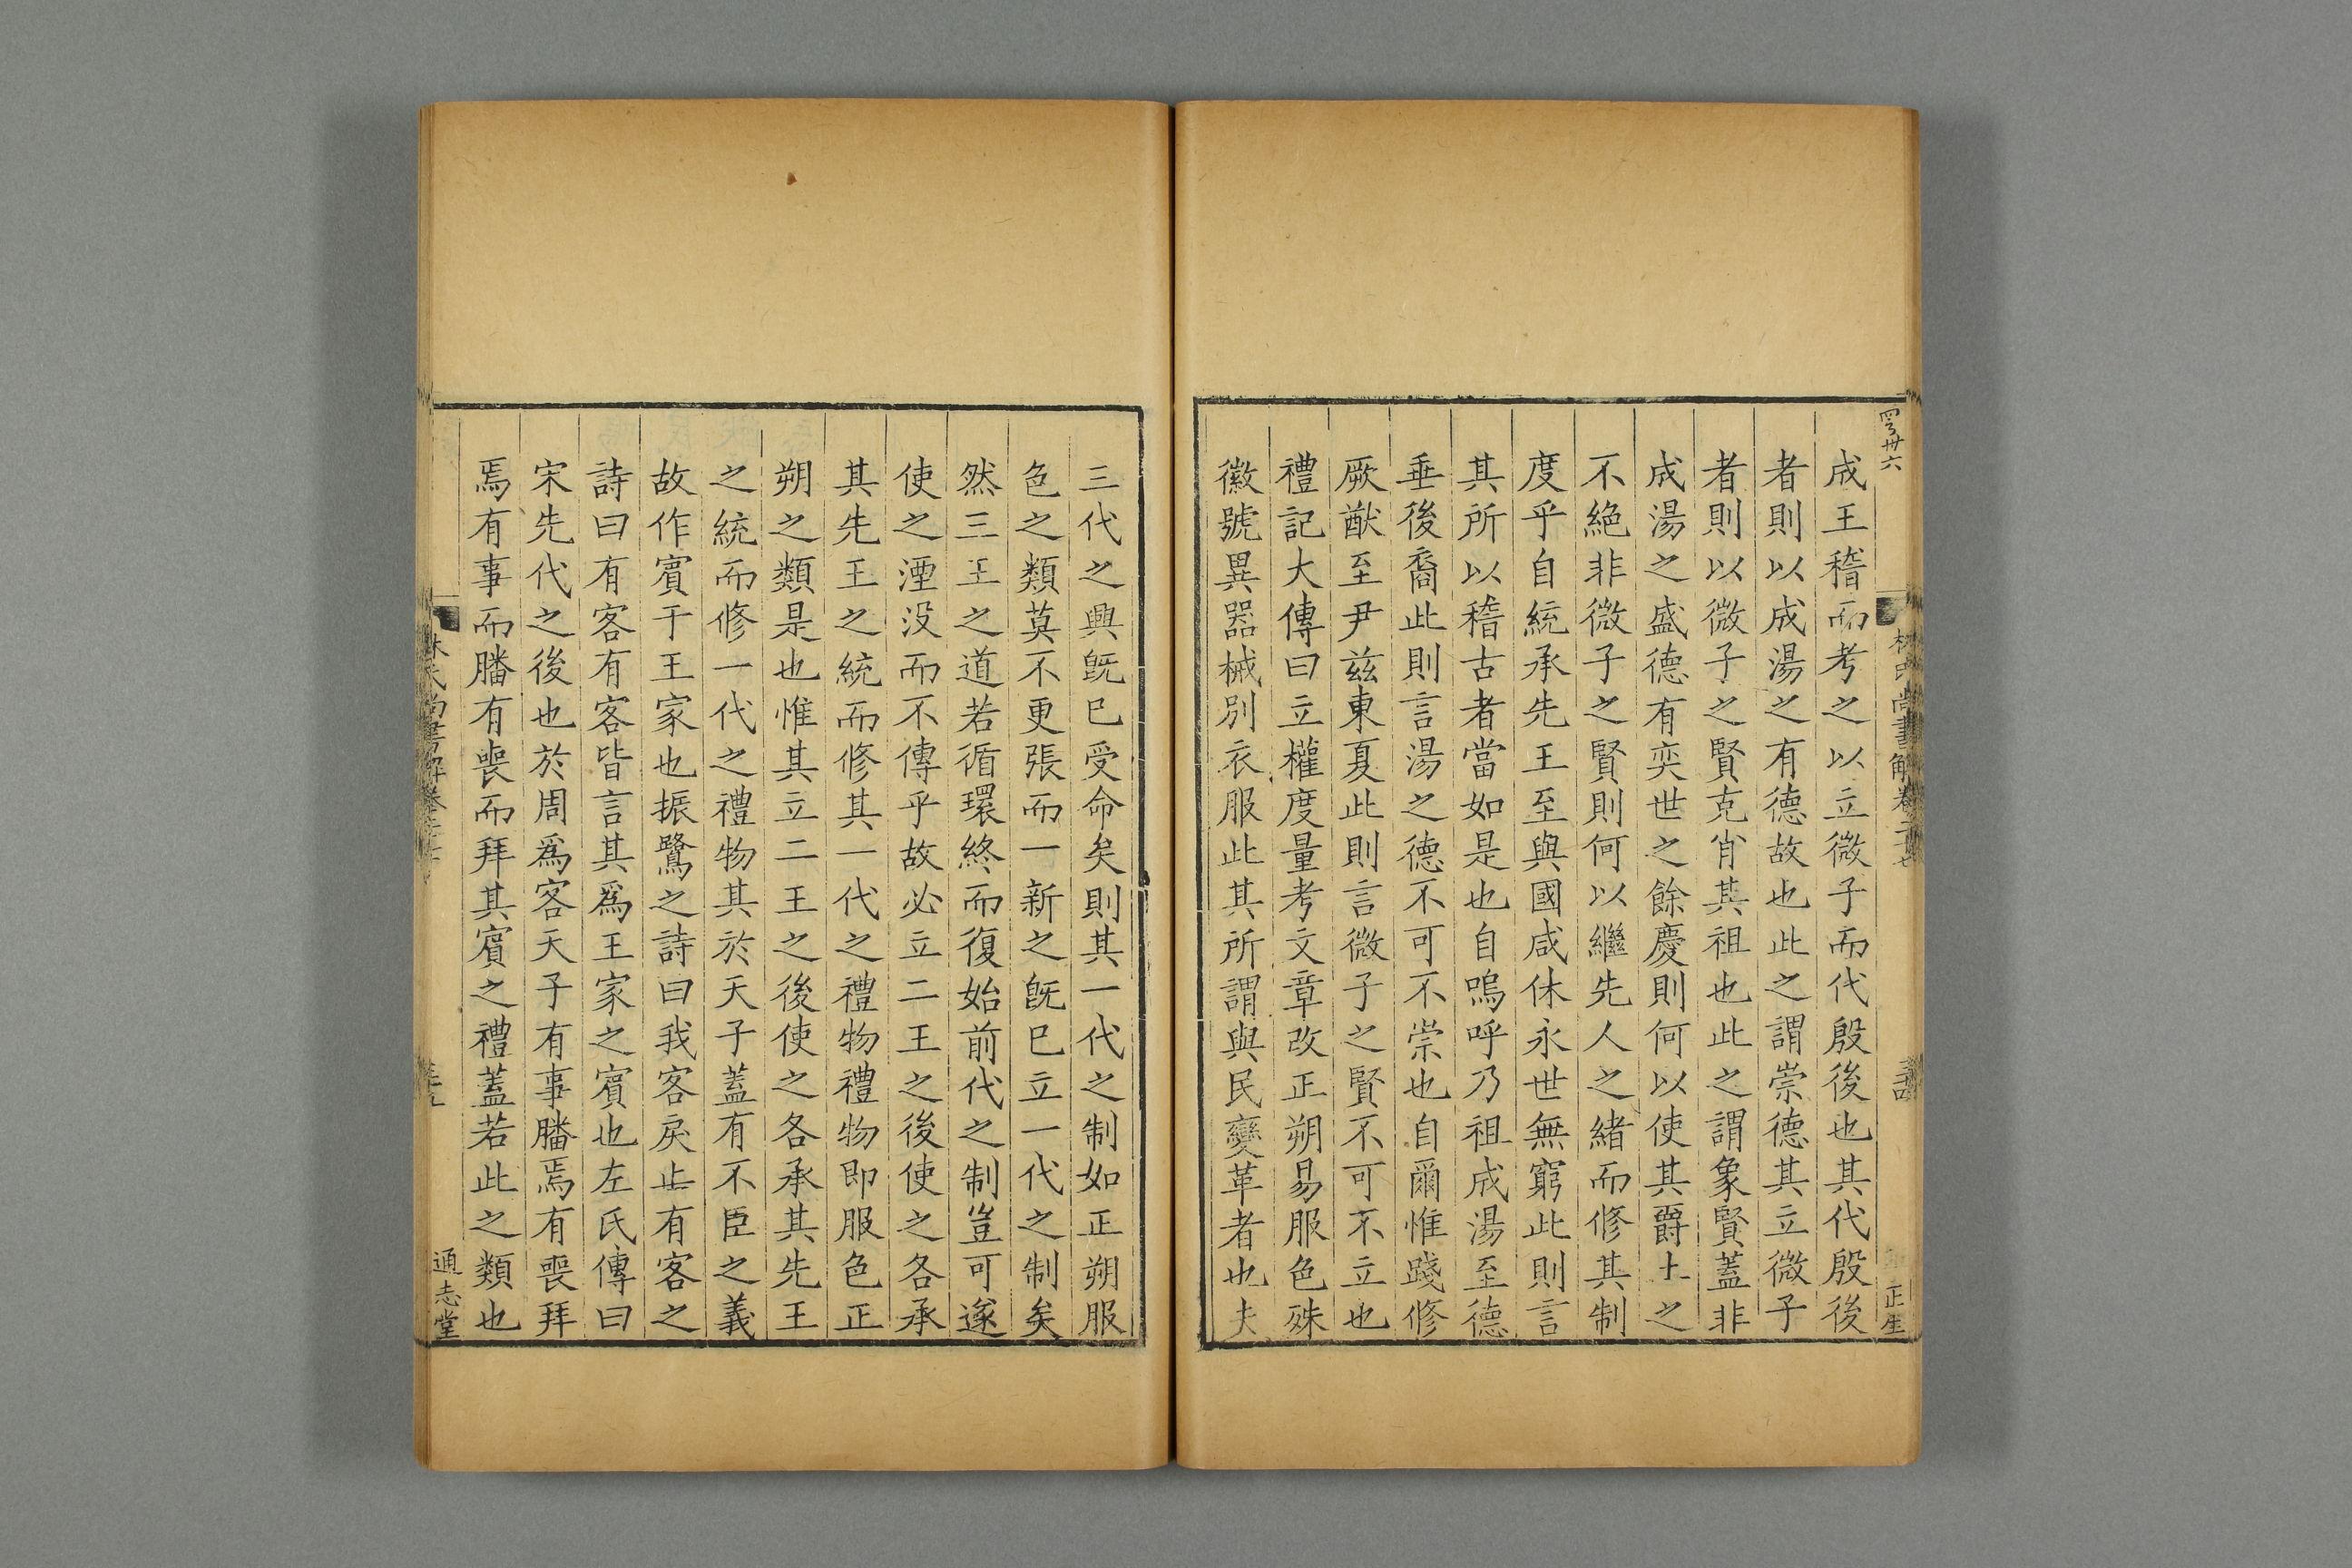 成王稽而考之以立微子而代殷後也其代殷後
者則以成湯之有德故也此之謂崇德其立微子
者則以微子之賢克肖其祖也此之謂象賢蓋非
成湯之盛德有奕世之餘慶則何以使其爵土之
不絶非微子之賢則何以繼先人之緒而修其制
度乎自統承先王至與國咸休永世無窮此則言
其所以稽古者當如是也自嗚呼乃祖成湯至德
垂後裔此則言湯之德不可不崇也自爾惟踐修
厥猷至尹茲東夏此則言微子之賢不可不立也
禮記大傳曰立權度量考文章改正朔易服色殊
徽號異器械別衣服此其所謂與民變革者也夫
三代之興旣已受命矣則其一代之制如正朔服
色之類莫不更張而一新之旣已立一代之制矣
然三王之道若循環終而復始前代之制豈可遂
使之湮没而不傳乎故必立二王之後使之各承
其先王之統而修其一代之禮物禮物即服色正
朔之類是也惟其立二王之後使之各承其先王
之統而修一代之禮物其於天子蓋有不臣之義
故作賓于王家也振鷺之詩曰我客戾止有客之
詩曰有客有客皆言其爲王家之賓也左氏傳曰
宋先代之後也於周爲客天子有事膰焉有喪拜
焉有事而膰有喪而拜其賓之禮蓋若此之類也
林氏尚書解卷
通志堂